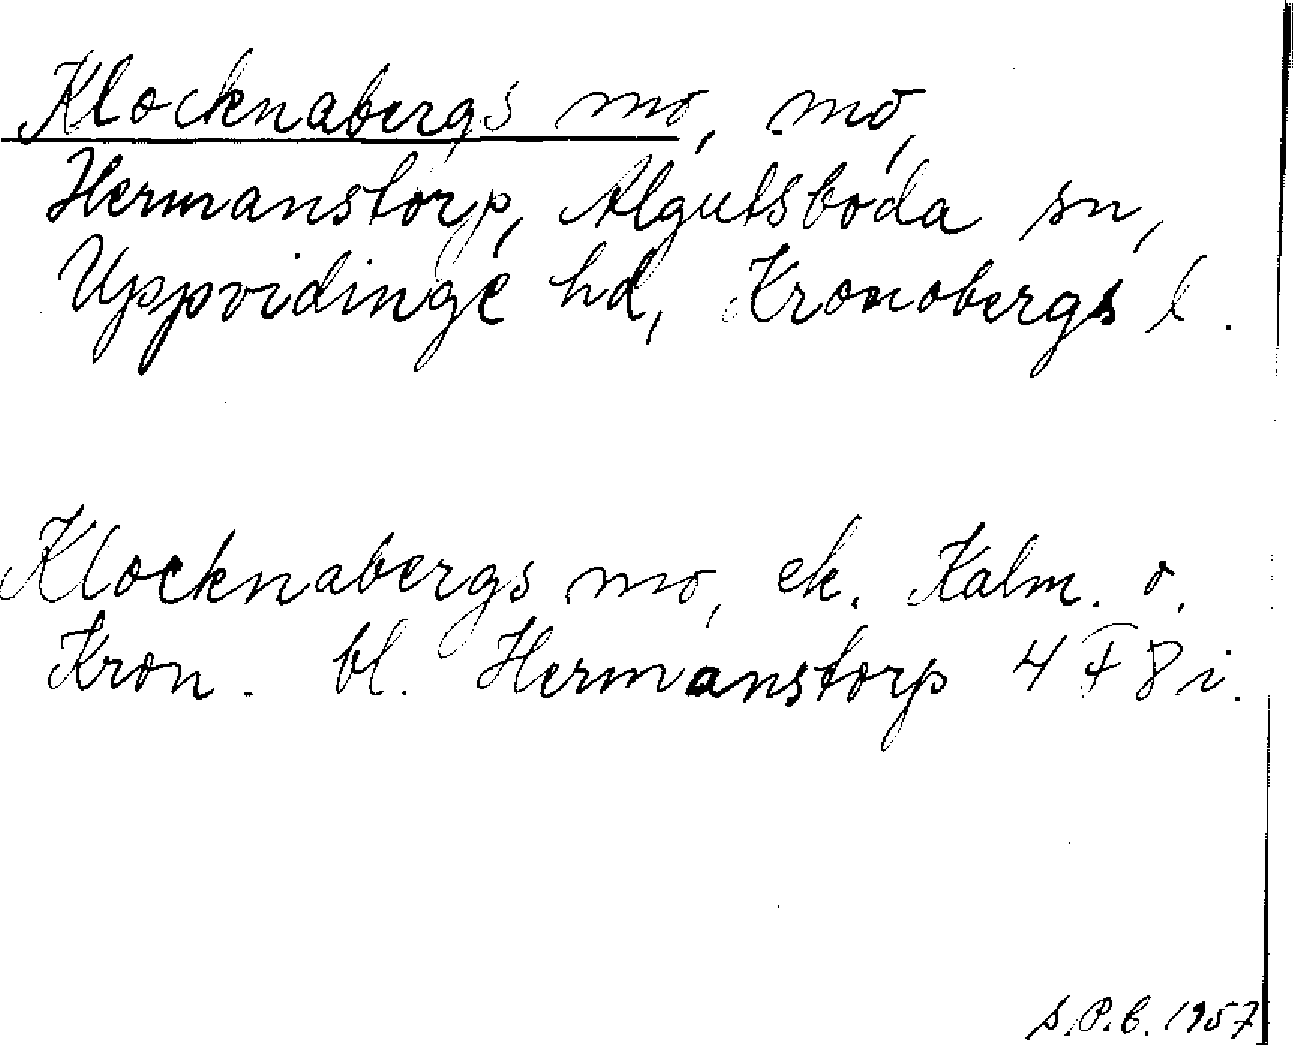 Klocknabergs mo, mo,
Hermanstorp, Algutsboda sn,
Uppvidinge hd, Kronobergs l.
Klocknabergs mo, ek. Kalm. o.
Kron. bl. Hermanstorp 4 F 8 i.
S.P.B. 1957